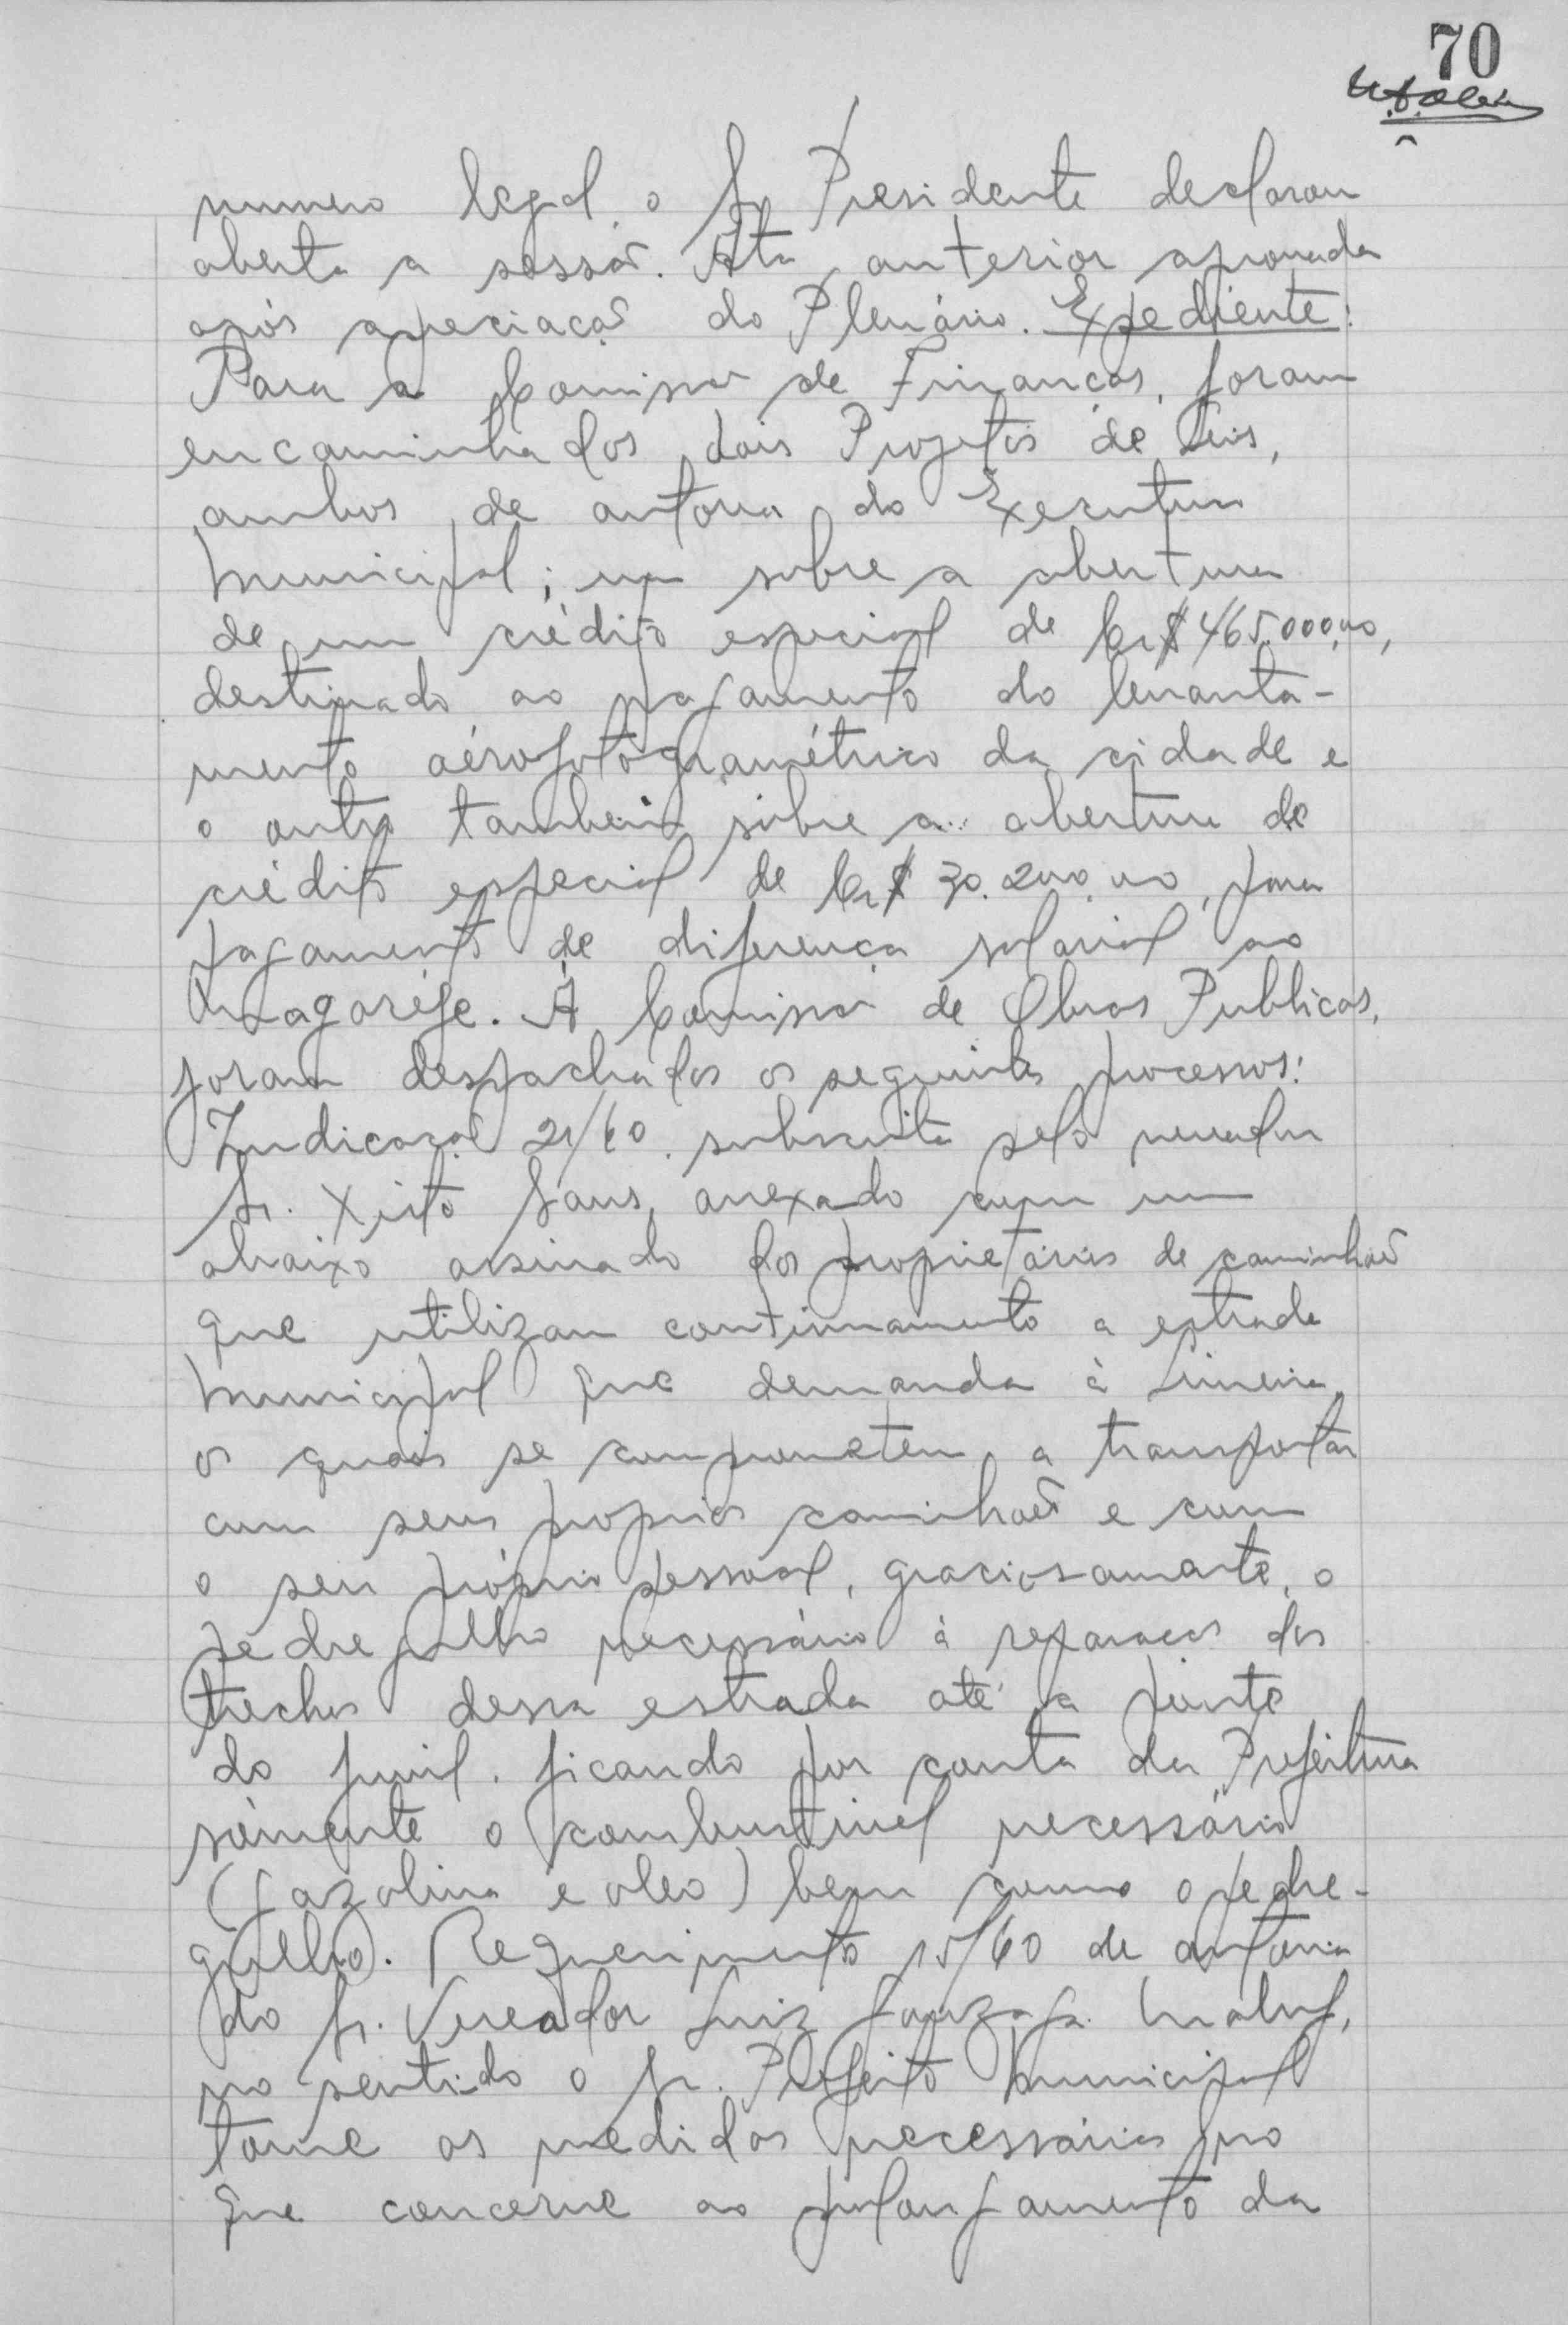 70
numero legal o Sr Presidente declarou
aberta a sessão. Ata anterior aprovada
após apreciação do Plenário. Expediente:
Para a Comissão de Finanças, foram
encaminhados dois Projetos de Leis,
ambos de autoria do Executivo
Municipal; um sobre a abertura
de um crédito especial de Cr$ 465.000,00,
destinado ao pagamento do levanta-
mento aérofotogramétrico da cidade e
o outro tambem sôbre a abertura de
crédito especial de Cr$ 30.200,00, para
pagamento de diferença salarial ao
Magarefe. À Comissão de Obras Publicas,
foram despachados os seguintes processos:
Indicação 21/60. subscrita pelo vereador
Sr. Xisto, anexado com um
abaixo assinado dos proprietários de caminhões
que utilizam continuamente a estrada
Municipal que demanda à Limeira,
os quais se comprometem a transportar
com seus proprios caminhões e com
o seu próprio pessoal, graciosamente, o
pedregulho necessário à reparação dos
trechos dessa estrada até a ponte
do funil. ficando por conta da Prefeitura
sómente o combustivel necessário
(gazolina e oleo) bem como o pedre-
gulho. Requerimento 15/60 de autoria
do Sr. Vereador Luiz Gonzaga Maluf,
no sentido o Sr. Prefeito Municipal
tome as medidas necessárias no
que concerne ao prolongamento da